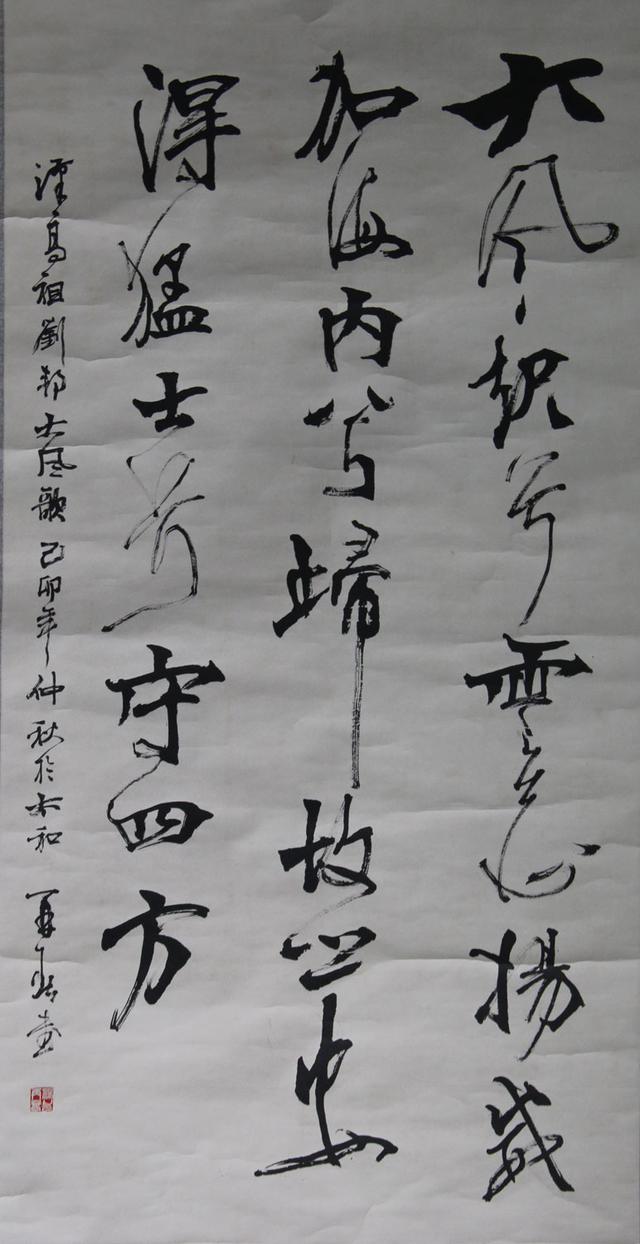 大風起兮雲飛揚威
加海内兮歸故鄉安
得猛士兮守四方
漢高祖劉邦大風歌己卯年仲秋於太和